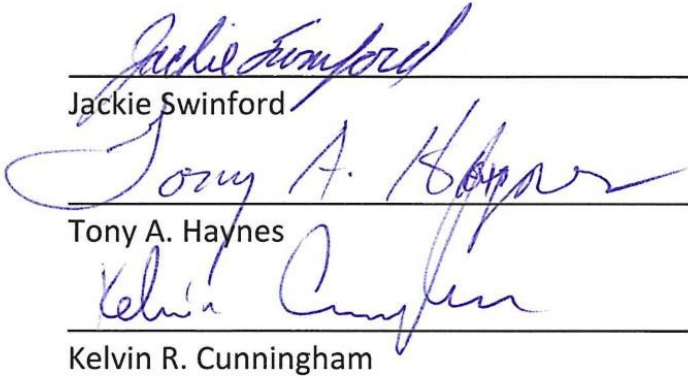 Jackie Swinford
Jackie Swinford
Tony A. Haynes
Tony A. Haynes
Kelvin Cunningham
Kelvin R. Cunningham